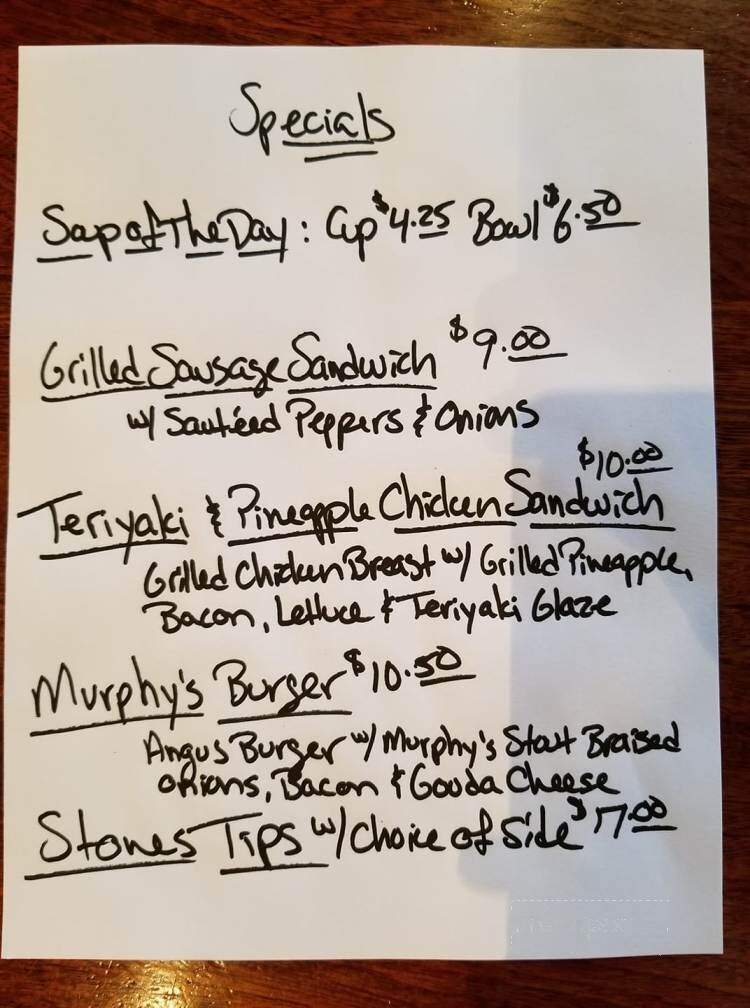 Specials
Soup of The Day: Cup $4.25 Bowl $6.50
Grilled Sausage Sandwich $9.00
w/ Sautéed Peppers & Onions
$10.00
Teriyaki & Pineapple Chicken Sandwich
Grilled Chicken Breast w/ Grilled Pineapple,
Bacon, Lettuce & Teriyaki Glaze
Murphy's Burger $10.50
Angus Burger w/ Murphy's Stout Braised
Onions, Bacon & Gouda Cheese
Stones Tips w/ Choice of Side $17.00